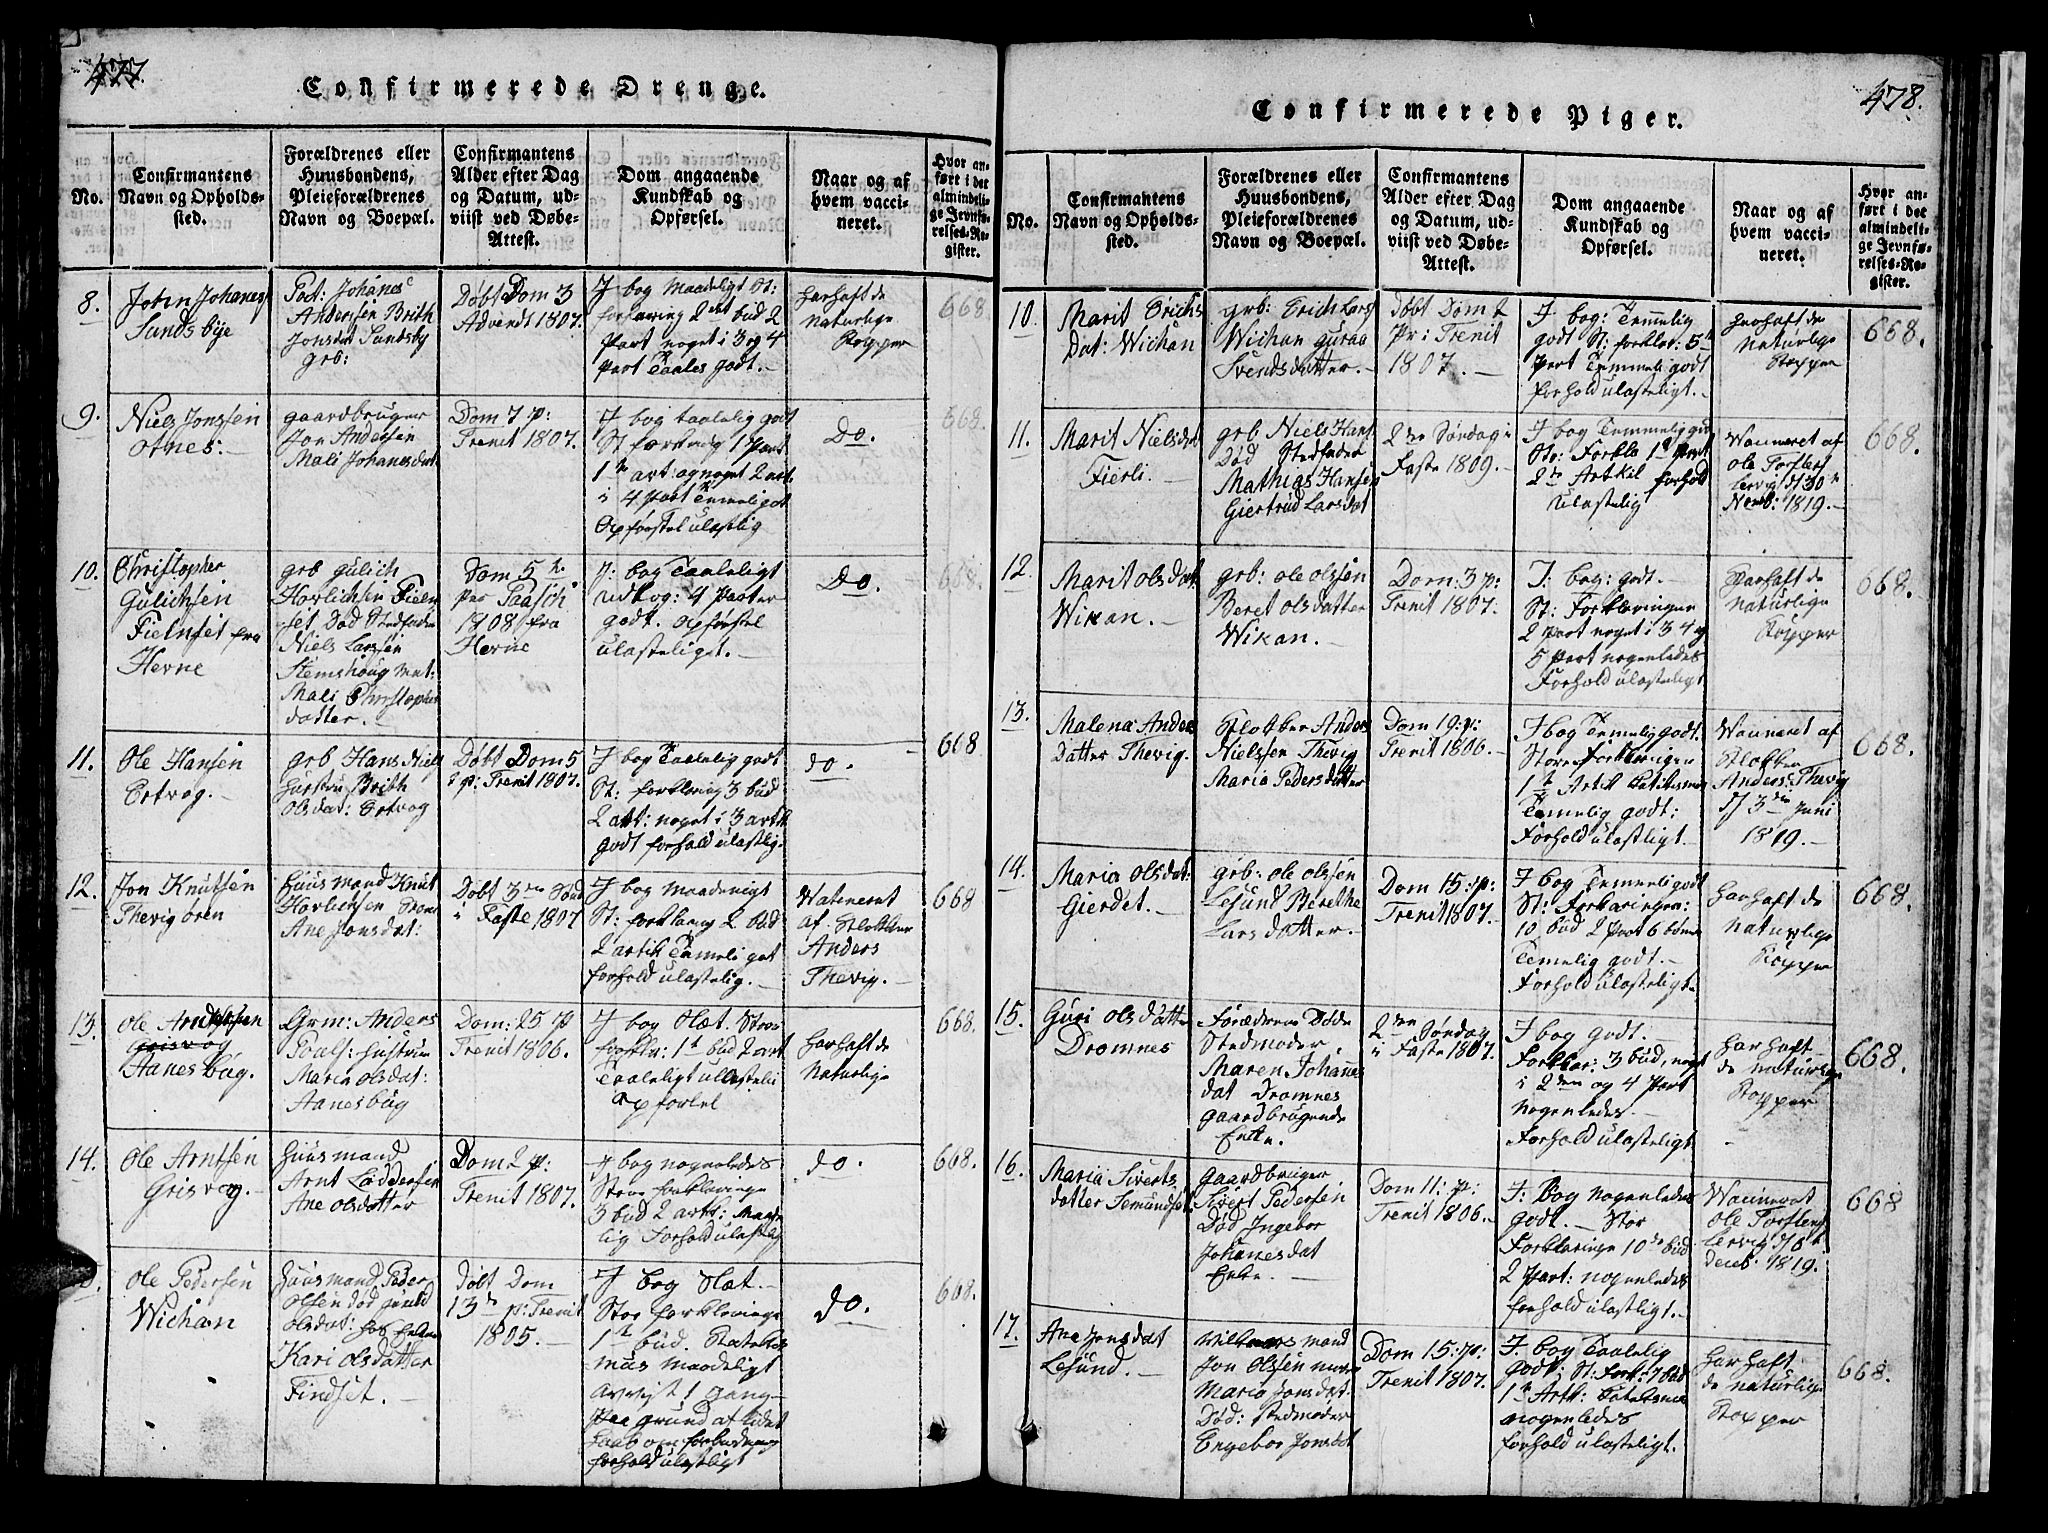 477.
Confirmerede Drenge.
No.
Confirmantens
Navn og Opholds-
sted.
Forældrenes eller
Huusbondens,
Pleieforældrenes
Navn og Boepæl.
Confirmantens
Alder efter Dag
og Datum, ud-
viist ved Døbe-
Attest.
Dom angaaende
Kundskab og
Opførsel.
Naar og af
hvem vacci-
neret.
Hvor an-
ført i det
almindeli-
ge Jevnfø-
relses-Re-
gister.
8.
John Johanes
Sundsbye
Johanes
Andersen Brith
Jonsdat Sundsby
grb:
Døbt Dom 3
Advendt 1807.
J bog maadeligt St:
forklaring 2det bud 2
Part noget i 3 og 4
part Taales godt.
har haft de
Naturlige
Kopper
668
9.
Niels Jonssen
Otnes.
gaardbruger
Jon Andersen
Mali Johanesdat
Dom 7 p:
Trenit 1807.
J bog taalelig godt
St forklaring 1 Part
1te art: og noget 2 art.
i 4 Part Temmeli got
Opførstel ulastlig
Do.
668.
10.
Christopher
Gulichsen
Fielnset fra
Herne
grb Gulich
Havlichsen Fieln-
set Død Stedfader
Niels Larssen
Stemshoug
Mali Christopher
datter.
Dom 5te
per Paasch
1808 fra
Herne
J: bog Taaleligt
udtog: 4 Parter
godt. opførstel
ulasteligt.
Do.
668.
11.
Ole Hansen
Ertvog.
grb Hans Niels
hustru Brith
Olsdat: Ertvog
Døbt Dom 5
p: Trenit 1807.
J bog Taalelig godt
St: forklaring 3 bud:
2 art: noget i 3 artk
godt forhold ulastlig.
do.
668
12.
Jon Knutsen
Thevig øren
huusmand Knut
Havlichsen
Ane Jonsdat:
Døbt 3die Sønd
i Faste 1807
J bog maadeligt
St: forklaring 2 bud
2 artik Temeli got
forhold ulastelig.
Vatineret
af Klokker
Anders
Thevig.
668
13.
Ole
Grisvog
Aanesbug.
Grm: Anders
Poals: hustrue
Maren Olsdat:
Aanesbug
Dom: 25 p
Trenit 1806.
J bog Slæt. Stoor
forkla: 1t bud 2 art
Taaleligt ullasteli
Opførtel
har haft de
Naturlige
668.
14.
Ole Arntsen
Grisvog.
huusmand
Arnt Laddersen
Ane Olsdatter
Dom 2 p:
Trenit 1807.
J bog nogenledes
Stoor forklaringe
3 bud 2 artt: Maade
lig Forhold ulastelig
do.
668.
Ole Pedersen
Wichan
huusmand Peder
Olsen død
Olsdat:
Kari Olsdatter
Findset.
Døbt Dom
13de p: Trenit
1805.
J bog Slæt.
Stor forklaringe
1te bud. Katekis
mus maadeligt
avvist 1 Gang
Paa grund af lidet
forhold ulasteligt
do.
668.
478.
Confirmerede Piger.
No.
Confirmantens
Navn og Opholds-
sted.
Forældrenes eller
Huusbondens,
Pleieforældrenes
Navn og Boepæl.
Confirmantens
Alder efter Dag
og Datum, ud-
viist ved Døbe-
Attest.
Dom angaaende
Kundskab og
Opførsel.
Naar og af
hvem vacci-
neret.
Hvor an-
ført i det
almindeli-
ge Jevnfø-
relses-Re-
gister.
10.
Marit Erichs
Dat: Wichan
grb: Erich Lars
Wichan Guraa
Svendsdatter.
Døbt Dom 2
Pr: Trenit
1807.
J: bog: Temmelig
godt St: forklar: 5te
part Temmeli godt
forhold ulasteligt.
har haft de
Naturlige
Kopper
668.
11.
Marit Nielsdat
Fierli.
grb Niels Hans
Død Stedfader
Mathias Hansen
Giertrud Larsdat
2den Søndag i
Faste 1809.
J bog Temmelig god
Sto: Forkla 1e Part
2den Artkil forhold
Ulastelig
Wacineret af
Ole Torstens
Lervig d/30te
Novb: 1819.
668.
12.
Marit Olsdat
Wikan.
grb: Ole Olssen
Beret Olsdatter
Wikan.
Dom: 3 p:
Trenit 1807.
J: bog: godt.
St: Forklaringen
2 part noget i 3 4 og
5 part nogenledes
Forhold ulasteligt
Harhaft de
naturlige
Kopper
668.
13.
Malena Anders
Datter Thevig.
Klokker Anders
Nielssen Thevig
Maria Pedersdatter
Dom 19: p:
Trenit 1806.
J bog Temelig godt.
Store forklaringen
1te Artkl Catetismus
Temelig godt:
Forhold ulasteligt.
Wacineret af
Klokker
Anders: Thevig
d/ 3die Juni
1819.
668.
14.
Maria Olsdat:
Gierdet.
grb: Ole Olssen
Lesund Berethe
Larsdatter.
Dom 15: p:
Trenit 1807.
J bog Temmelig godt
St: Forklaringen:
10 bud 2 part 6 bøn
Temelig godt.
Forhold ulasteligt.
har haft de
Naturlige
Kopper
668.
15.
Guri Olsdatter
Dromnes
Foræderene Døde
Stedmoder
Maren Johannes
dat Dromnes
gaardbrugende
Enke.
2den Søndag
i Faste 1807.
J bog godt.
Forklar: 3 bud, noget
i 2den og 4 Part
nogenledes.
Forhold ulasteligt
har haft
de naturlige
Kopper
668.
16.
Maria Siverts
datter Semundset
gaardbruger
Sivert Pedersen
Død Ingebor
Johanesdat
Enke.
Dom 11: p:
Trenit 1806.
J: bog nogenledes
godt. Stor
Forklaringe 10de bud
2 Part: nogenledes
forhold ulasteligt.
Wacineret
Ole Torstens
Lervig d/6te
deceb 1819.
668
17.
Ane Jonsdat
Lesund.
mand
Jon Olssen
Maria Jonsdat:
Død: stedmoder
Engebor Jonsdat
Dom 15: p:
Trenit 1807.
J: bog Taalelig
godt; St: fork: 7 bud
1te Artk: Catetismus
nogenledes
forhold ulasteligt.
har haft
de naturlige
Kopper
668.